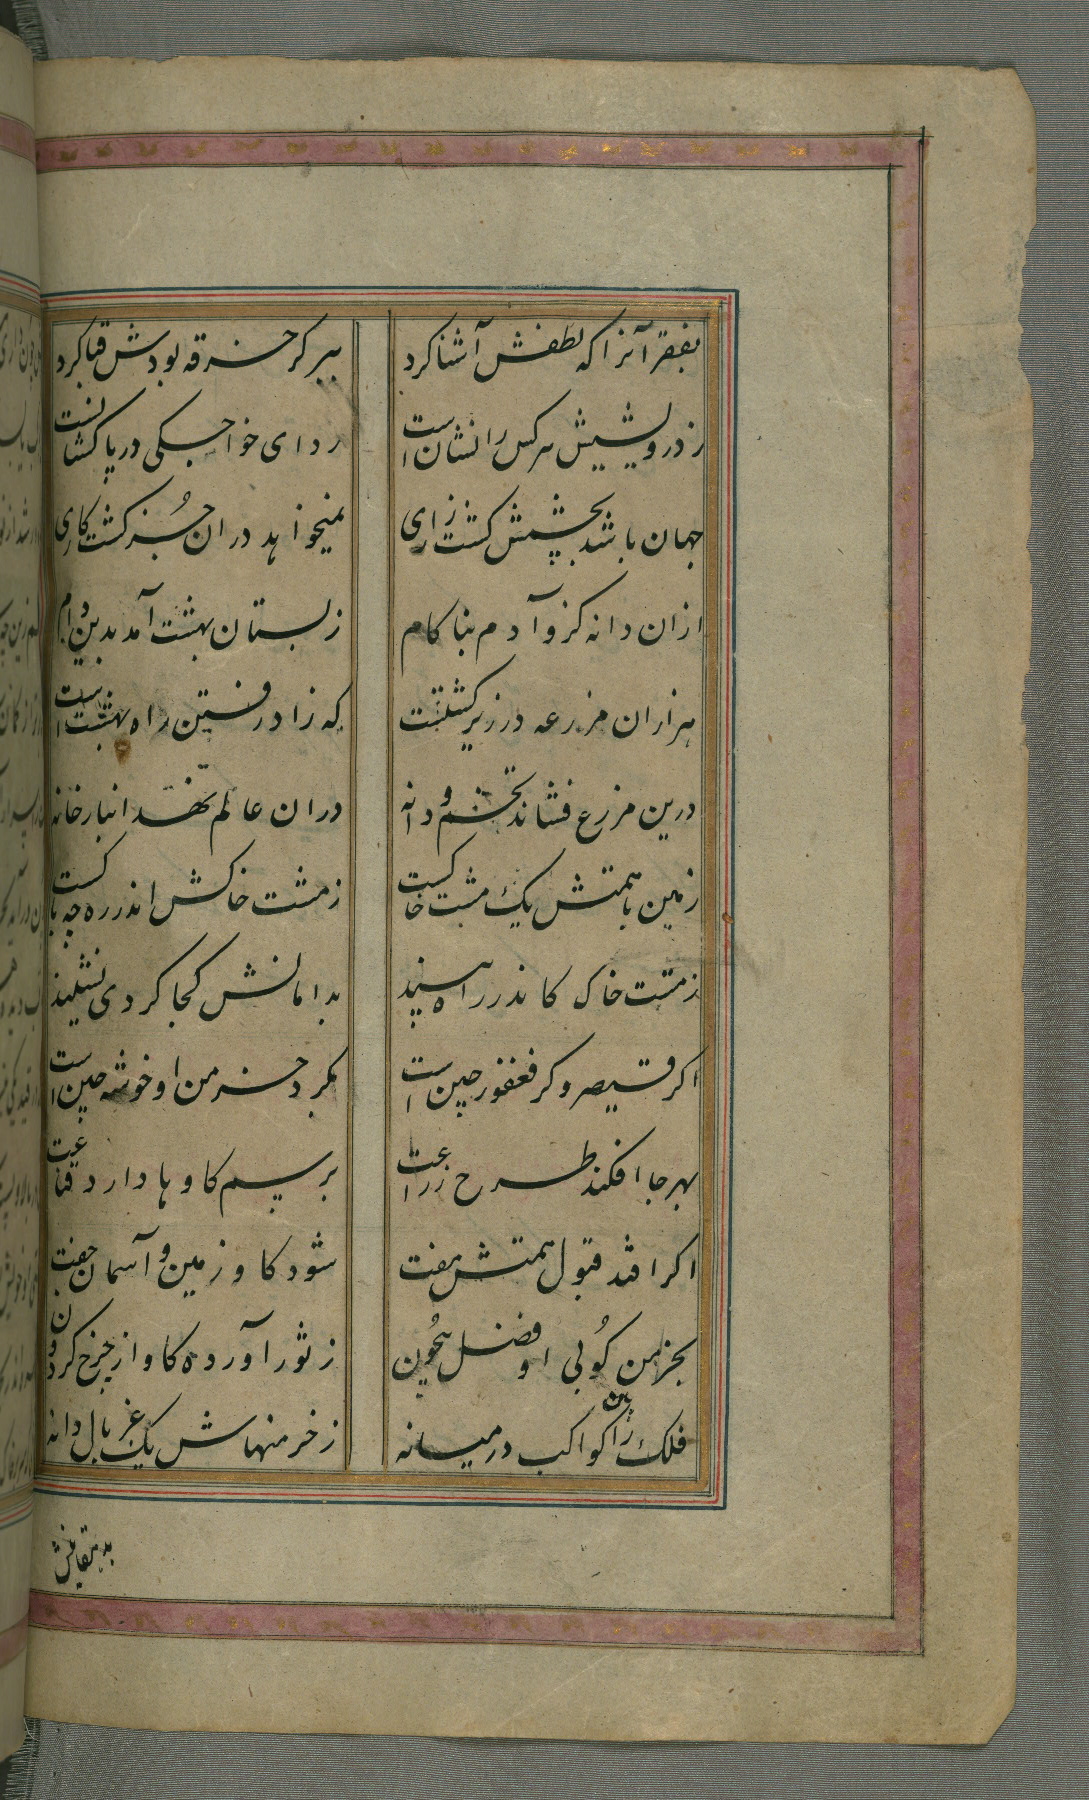 بفقر آنرا که لطفش آشنا کرد ببر کر خرقه بودش قبا کرد
ز درویشیش هر کس را نشان است ردای خواجکی در پا کشانست
جهان باشد بچشمش کشت زاری نمیخواهد در ان جز کشت کاری
ازان دانه کزو آدم بناکام ز بستان بهشت آمد بدین دام
هزاران مزرعه در زیر کشتست که زاد رفتن راه بهشت است
درین مزرع فشاند تخم و دانه دران عالم نهد انبار خانه
زمین با همتش یک مشت خاکست ز مشت خاکش اندر ره چه باکست
ز مشت خاک کاندر راه بیند بدامانش کجا کردی نشیند
اکر قیصر و کر فغفور چین است بکرد خرمن او خوشه چین است
بهر جا افکند طرح زراعت بر سیم کاوها دارد قناعت
اکر افتد قبول همتش مفت شود کاو زمین و آسمان جفت
بجز من کوبی او فضل بیچون ز ثور آورده کاو از چرخ کردون
فلک را زان کواکب در میانه ز خرمنهاش یک غربال دانه
بدهقانیش